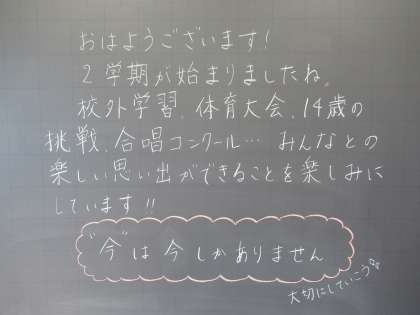 おはようございます!
2学期が始まりましたね。
校外学習、体育大会、14歳の
挑戦、合唱コンクール… みんなとの
楽しい思い出ができることを楽しみに
しています!!
"今"は今しかありません
大切にしていこう